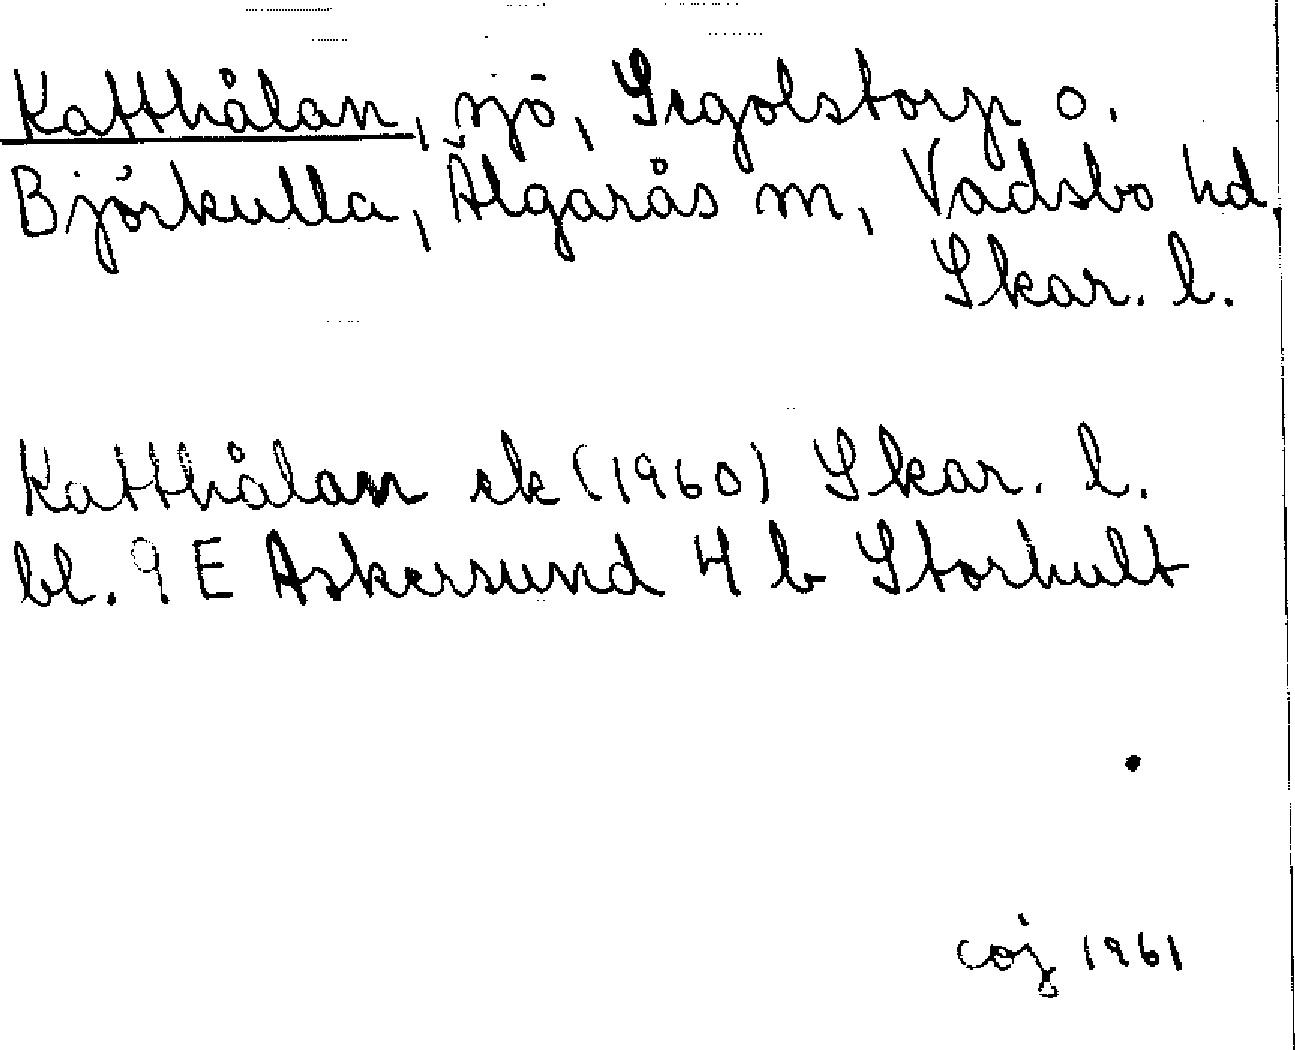 Katthålan, sjö, Sigolstorp o.
Björkulla, Älgarås sn, Vadsbo hd,
Skar. l.
Katthålan ek (1960) Skar. l.
bl. 9 E Askersund 4 b Storhult
coj 1961